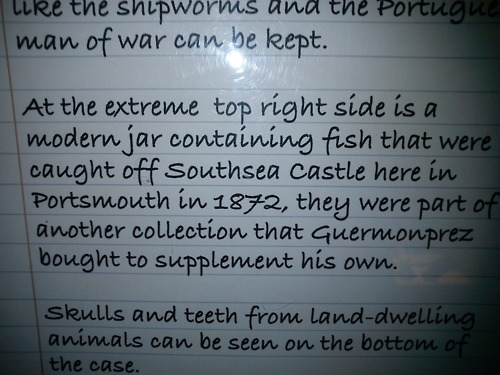 like the shipworms and the Portugue
man of war can be kept.
At the extreme top right side is a
modern jar containing fish that were
caught off Southsea Castle here in
Portsmouth in 1872, they were part of
another collection that Guermonprez
bought to supplement his own.
Skulls and teeth from land-dwelling
animals can be seen on the bottom of
the case.